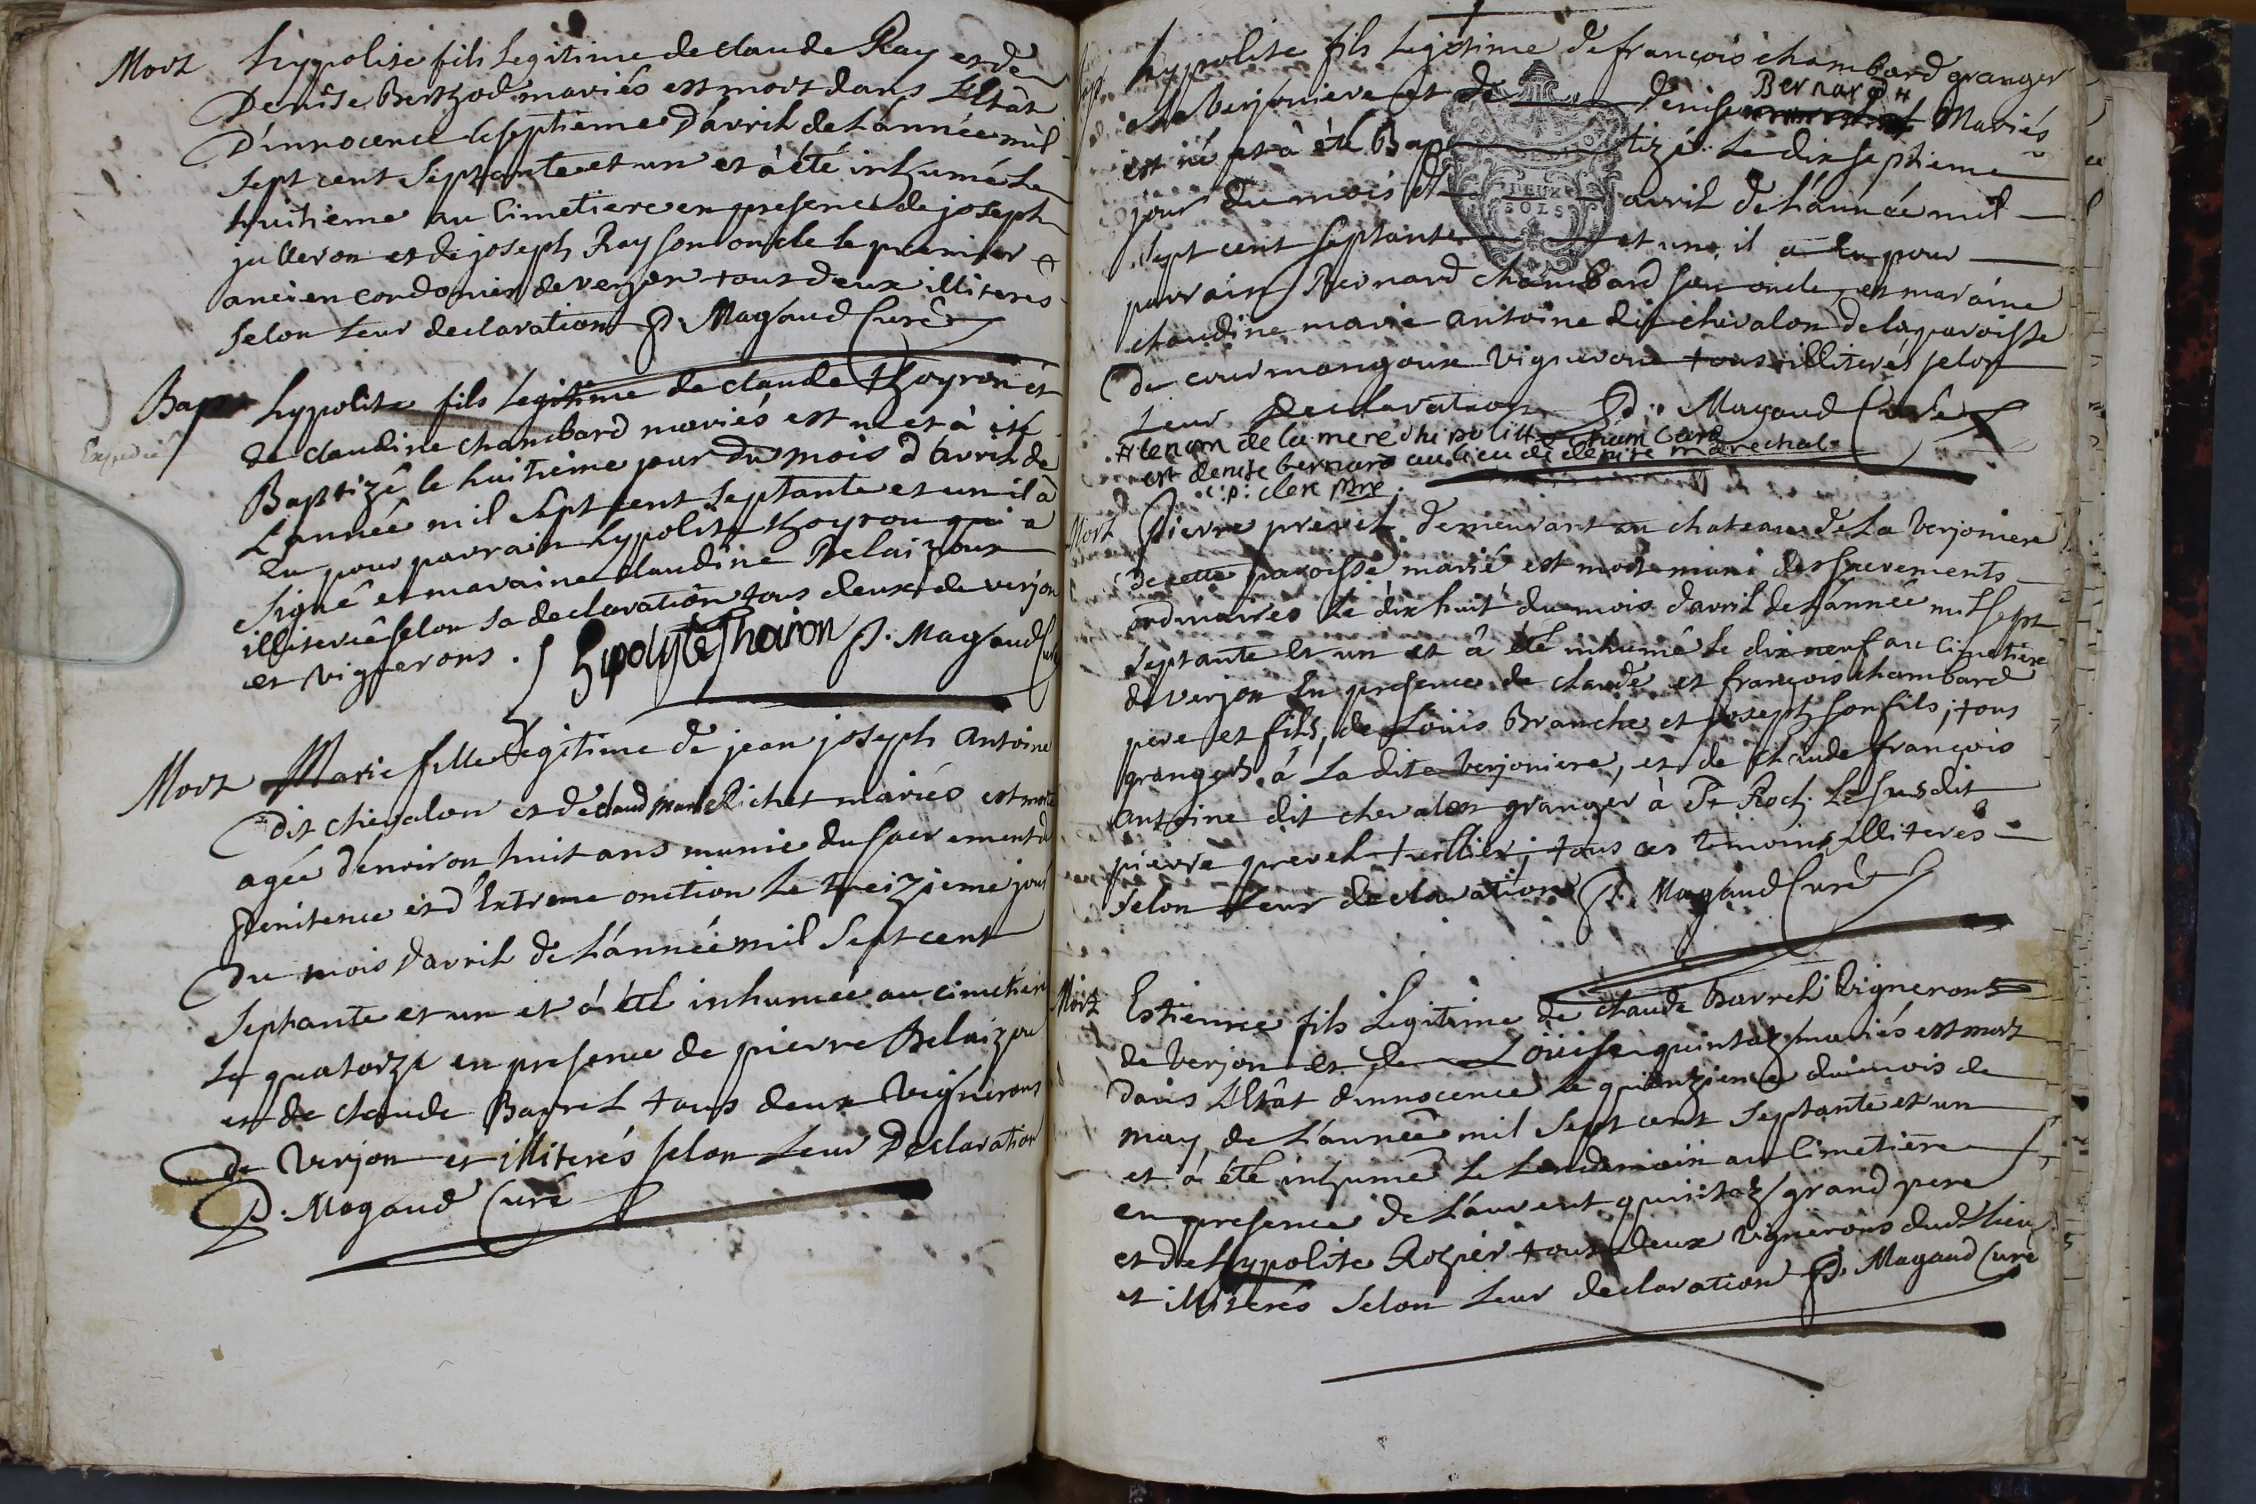 Mort hypolite fils legitime de claude Ray et de
Denise Berthod mariés est mort dans L'Etât
D'innocence le septieme d'avril de L'année mil
sept cent septante et un et à été inhumé Le
huitieme au Cimetiere en presence de joseph
julleron et de joseph Ray son oncle le premier
ancien cordonier de verjon tous deux illiteres
selon Leur declaration P. Magaud Curé
Bap hypolite fils legitime de claude thoyron et
Expedié
de claudine chambard mariés est né et à été
Baptizé le huitieme jour du mois d'Avril de
L'année mil sept cent septante et un il à
Eu pour parrain hypolite thoyron qui a
signé et maraine claudine Belaizoux
illiterée selon sa declaration tous deux de verjon
et vignerons. hipolyte Thoiron P. Magaud Curé
Mort Marie fille legitime de jean joseph Antoine
dit chevalon et de claud marie Richet mariés est morte
agée d'environ huit ans munie du sacrement de
Penitence et d'Extreme onction Le treizieme jour
du mois d'avril de L'année mil sept cent
septante et un et à été inhumée au cimetiere
Le quatorze en presence de pierre Belaizou
et de claude Barrel tous deux vignerons
de verjon et illiterés selon Leur Declaration
P. Magaud Curé
hypolite fils legitime de françois chambard granger
de la verjoniere et de Denise Bernard # Mariés
est né et à été Baptizé Le dix septieme
DEUX
SOLS
jour du mois d'avril de L'année mil
sept cent septante et un, il a Eu pour
parrain Bernard chambard son oncle, et maraine
claudine marie antoine dit chevalon de la paroisse
de courmangoux vigneron tous illiterés selon
Leur Declaration P. Magaud Curé
# le nom de la mere d'hipolitte chambard
est denise bernard au lieu de denise marechal
c.p. clerc ptre
Mort Pierre prevel demeurant au chateau de La verjoniere
de cette paroisse marié est mort muni des sacrements
ordinaires Le dix huit du mois d'avril de L'année mil sept
septante et un et à été inhumé le dix neuf au Cimetiere
de verjon En presence de claude et françois chambard
pere et fils, de Louis Branche et joseph son fils; tous
grangers à La dite verjoniere, et de claude françois
antoine dit chevalon granger à St Roch. Le susdit
pierre prevel tuillier; tous ces temoins illiterés
selon Leur declaration P. Magaud Curé
Mort Estienne fils Legitime de claude Barrel vigneron
de verjon et de Loüise quintaz mariés est mort
dans L'Etât d'innocence le quinzieme du mois de
may, de L'année mil sept cent septante et un
et à été inhumé Le Landemain au Cimetiere
en presence de Laurent quintaz grand pere
et de hypolite Rozier tous deux vignerons dud. lieu
et illiterés selon Leur declaration P. Magaud Curé